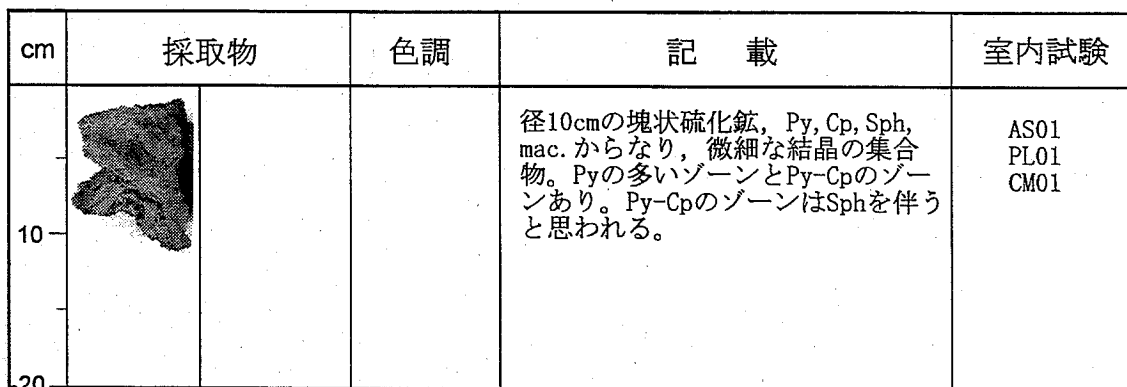 cm 採取物 色調 記 載 室内試験
径10cmの塊状硫化鉱, Py, Cp, Sph,
mac. からなり, 微細な結晶の集合
物。Pyの多いゾーンとPy-Cpのゾー
ンあり。Py-CpのゾーンはSphを伴う
と思われる。
AS01
PL01
CM01
10
20